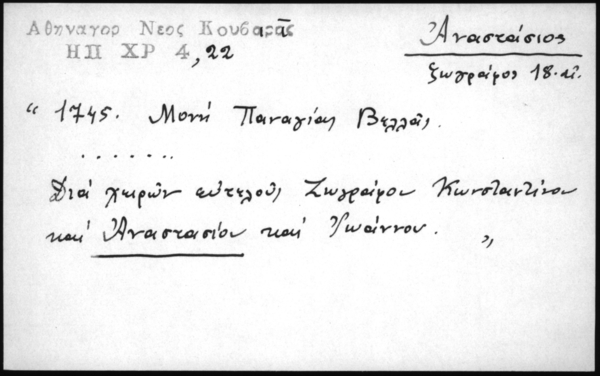 Αθηναγορ Νεος Κουβαρᾶς
ΗΠ ΧΡ 4, 22
Ἀναστάσιος
ζωγράφος 18. αἰ.
“ 1745. Μονή Παναγίας Βελλᾶς.
. . . . . . .
Διά χειρῶν εὐτελοῦς Ζωγράφου Κωνσταντίνου
καί Ἀναστασίου καί Ἰωάννου. „